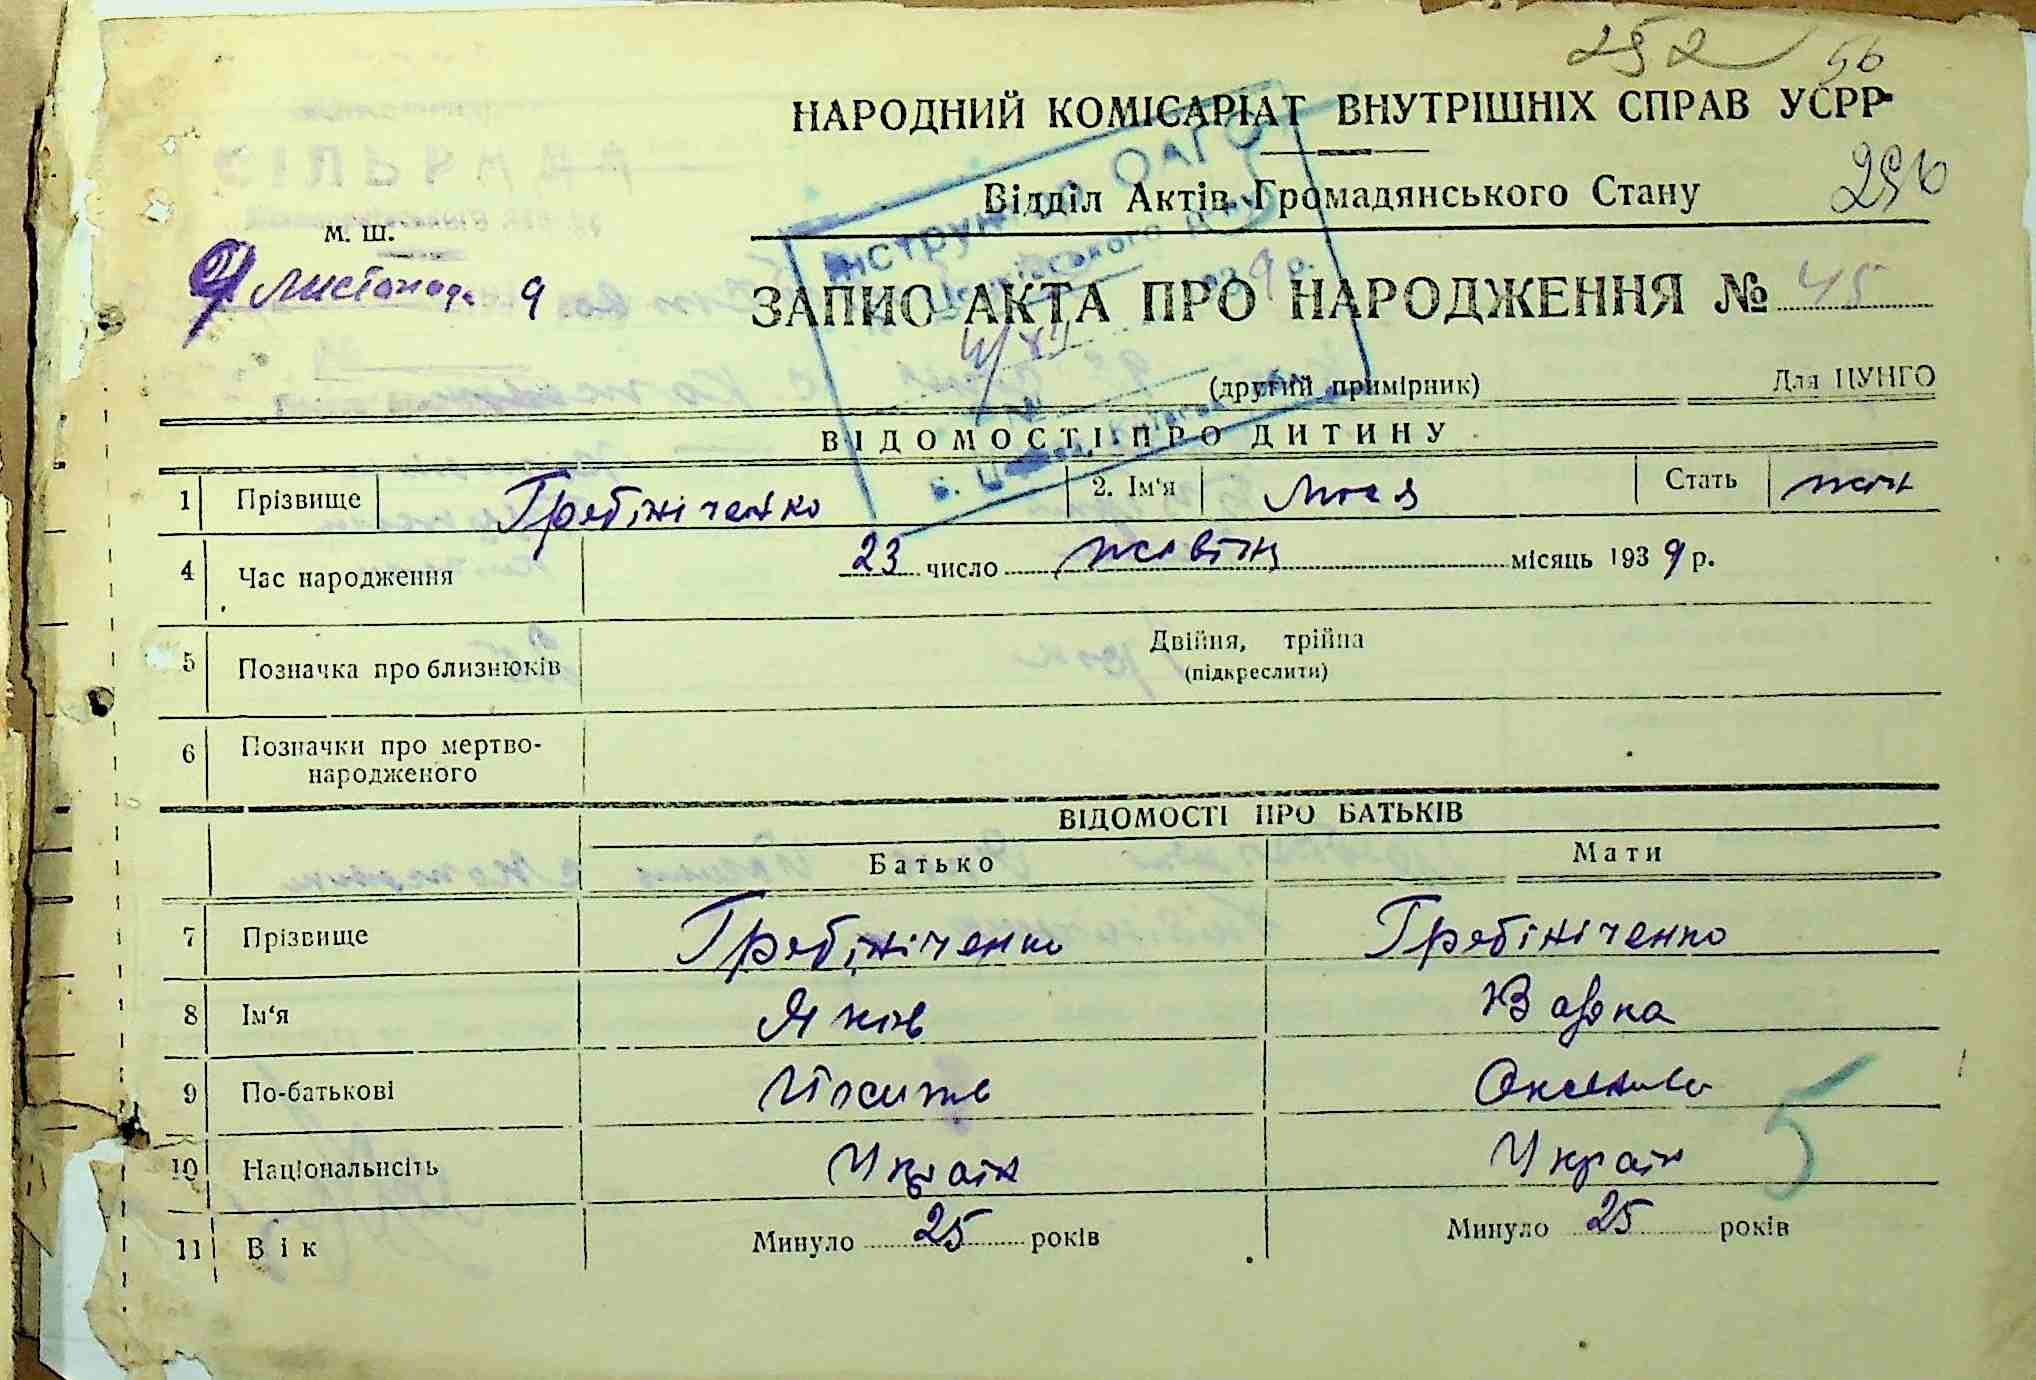 252 56
НАРОДНИЙ КОМІСАРІАТ ВНУТРІШНІХ СПРАВ УСРР
Відділ Актів Громадянського Стану
256
м. ш.
листопада 9
ЗАПИС АКТА ПРО НАРОДЖЕННЯ № 45
(другий примірник) Для ЦУНГО
ВІДОМОСТІ ПРО ДИТИНУ
1 Прізвище Грябініченко 2. Ім'я Стать жін
4 Час народження 23 число жовтн місяць 1939 р.
5 Позначка про близнюків Двійня, трійна
(підкреслити)
6 Позначки про мертво-
народженого
ВІДОМОСТІ ПРО БАТЬКІВ
Батько Мати
7 Прізвище Грябініченко Грябініченко
8 Ім'я Яків Варка
9 По-батькові Йосипів
10 Національнсіть Україн Україн
5
11 Вік Минуло 25 років Минуло 25 років